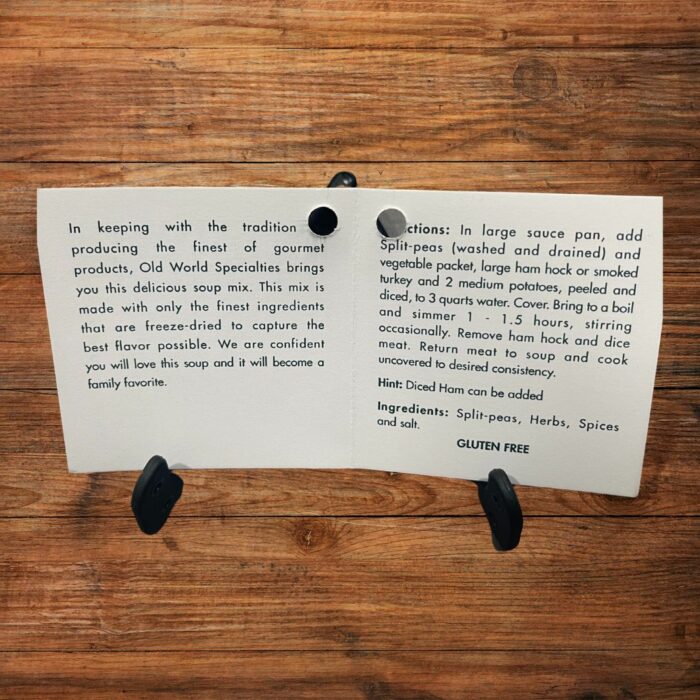 In keeping with the tradition
producing the finest of gourmet
products, Old World Specialties brings
you this delicious soup mix. This mix is
made with only the finest ingredients
that are freeze-dried to capture the
best flavor possible. We are confident
you will love this soup and it will become a
family favorite.
ctions: In large sauce pan, add
Split-peas (washed and drained) and
vegetable packet, large ham hock or smoked
turkey and 2 medium potatoes, peeled and
diced, to 3 quarts water. Cover. Bring to a boil
and simmer 1 - 1.5 hours, stirring
occasionally. Remove ham hock and dice
meat. Return meat to soup and cook
uncovered to desired consistency.
Hint: Diced Ham can be added
Ingredients: Split-peas, Herbs, Spices
and salt.
GLUTEN FREE